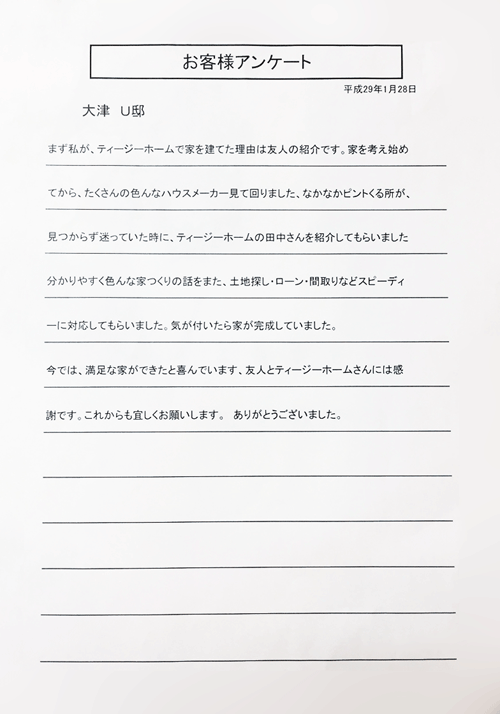 お客様アンケート
平成29年1月28日
大津　U邸
まず私が、ティージーホームで家を建てた理由は友人の紹介です。家を考え始め
てから、たくさんの色んなハウスメーカー見て回りました、なかなかピントくる所が、
見つからず迷っていた時に、ティージーホームの田中さんを紹介してもらいました
分かりやすく色んな家つくりの話をまた、土地探し・ローン・間取りなどスピーディ
ーに対応してもらいました。気が付いたら家が完成していました。
今では、満足な家ができたと喜んでいます、友人とティージーホームさんには感
謝です。これからも宜しくお願いします。　ありがとうございました。